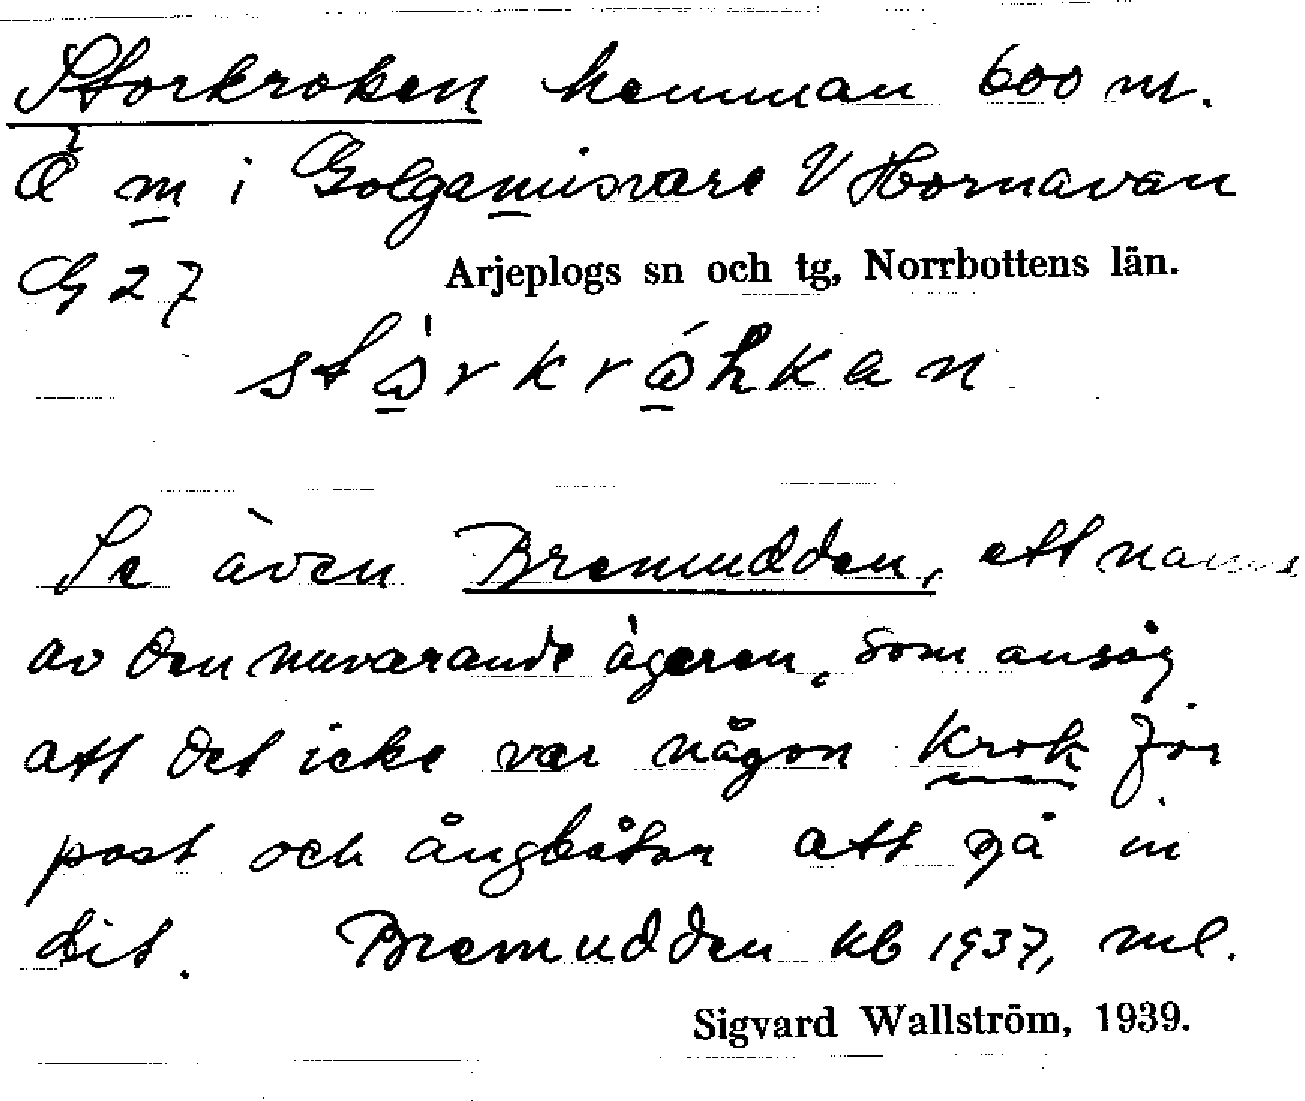 Storkroken hemman 600 m.
Ö m i Golgamisvare V Hornavan
G 27
Arjeplogs sn och tg, Norrbottens län.
stårkråhkan
Se även Bremudden, ett namn
av den nuvarande ägaren, som ansåg
att det icke var någon krok för
post och ångbåten att gå in
dit. Bremudden kb 1937, ml.
Sigvard Wallström, 1939.